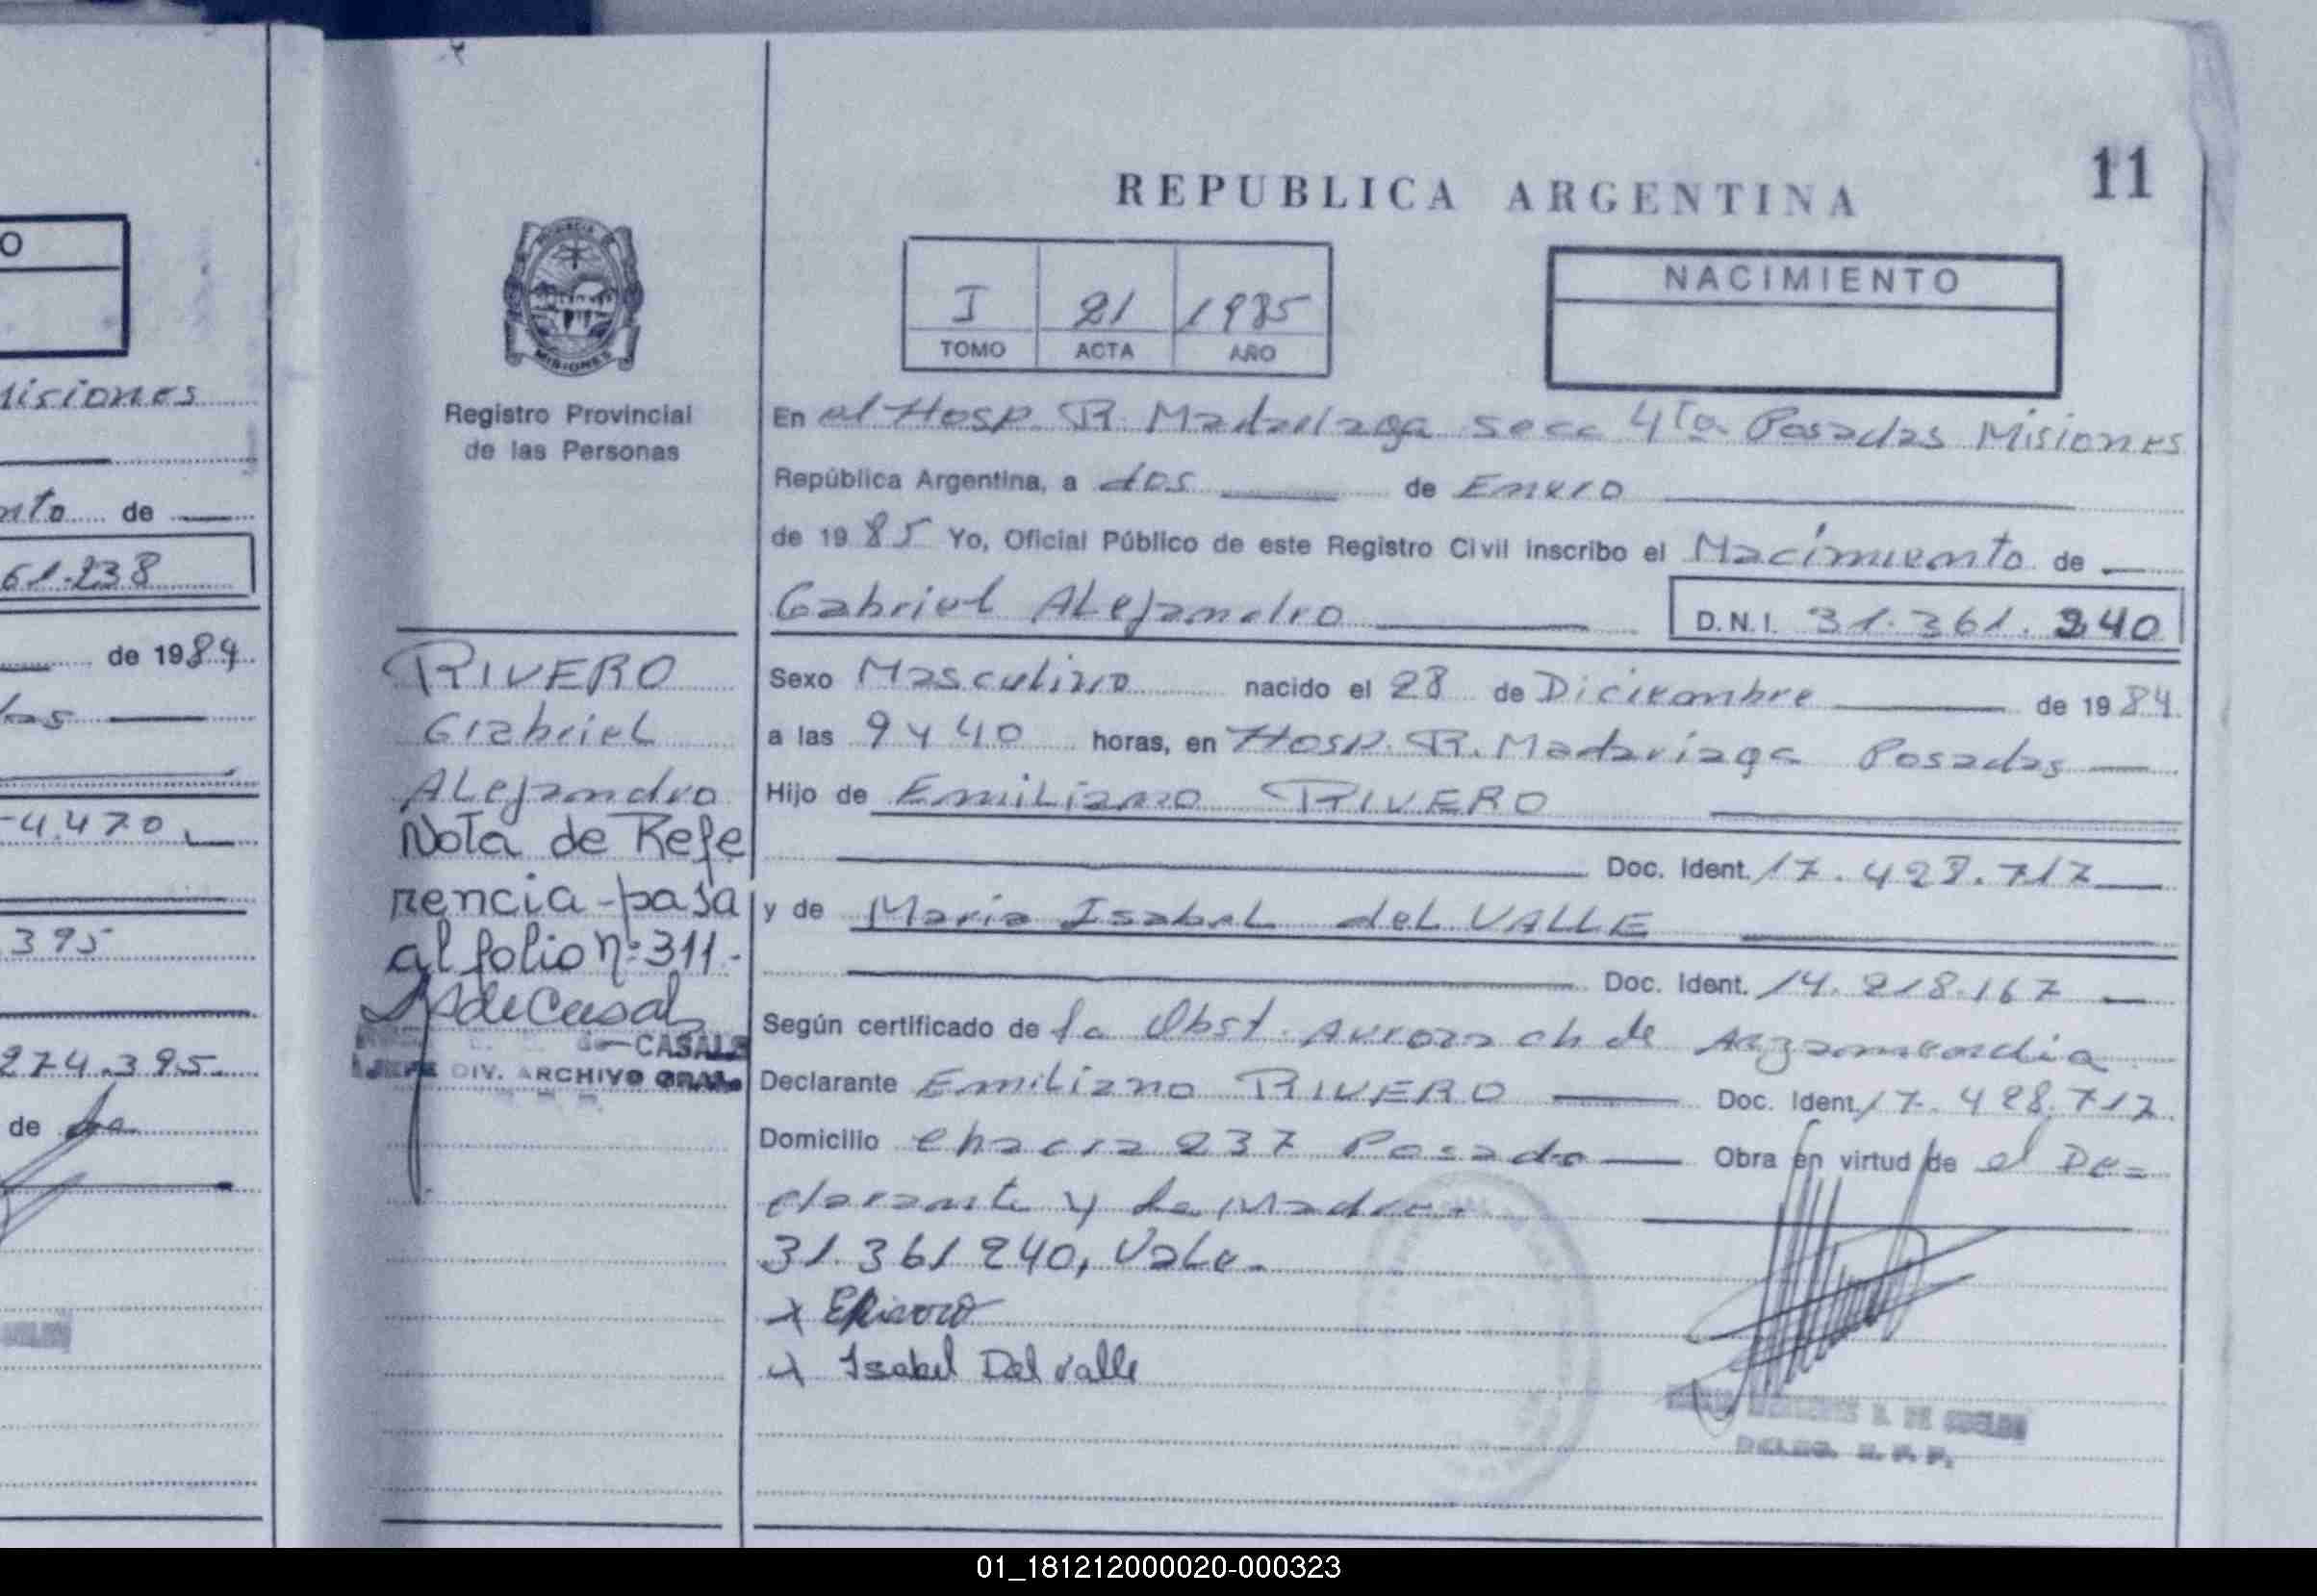 O
Misiones
nto de
61.238
de 1984
-4.470
395
274.395
de
11
REPUBLICA ARGENTINA
I 21 1985
TOMO ACTA AÑO
NACIMIENTO
MISIONES
Registro Provincial
de las Personas
En el Hosp. R. Madariaga secc 4ta Posadas Misiones
República Argentina, a dos de Enero
de 1985 Yo, Oficial Público de este Registro Civil inscribo el Nacimiento de
Gabriel Alejandro D.N.I. 31.361.240
RIVERO
Gabriel
Alejandro
Nota de Refe
rencia-pasa
al folio nº 311.-
de Casals
de CASALS
JEFE DIV. ARCHIVO GRAL.
Sexo Masculino nacido el 28 de Diciembre de 1984
a las 9 y 40 horas, en Hosp. R. Madariaga Posadas
Hijo de Emiliano RIVERO
Doc. Ident. 17.428.717
y de Maria Isabel del VALLE
Doc. Ident. 14.218.167
Según certificado de la Obst. Aurora ch de Arzamendia
Declarante Emiliano RIVERO Doc. Ident. 17.428.717
Domicilio Chacra 237 Posadas Obra en virtud de el De=
clarante y la Madre.
31.361.240, Vale.
x ERivero
x Isabel Del Valle
01_181212000020-000323